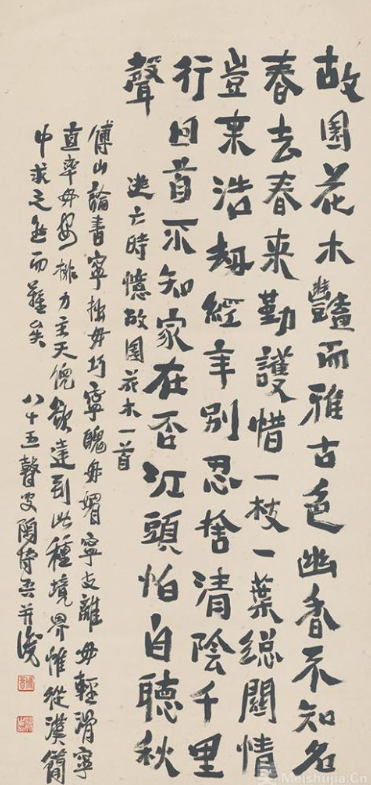 故園花木豔而雅古色幽香不知名
春去春来勤護惜一枝一葉總關情
豈浩劫經年別忍捨清陰千里
行回首不知家在否江頭怕自聽秋
聲
逃亡時憶故園花木一首
傅山論書寧拙毋巧寧醜毋媚寧支離毋輕滑寧
直率毋安排力主天倪欲達到此種境界惟從漢簡
中求之然而難矣
八十五叟陶博吾并識
Meishujia.Cn